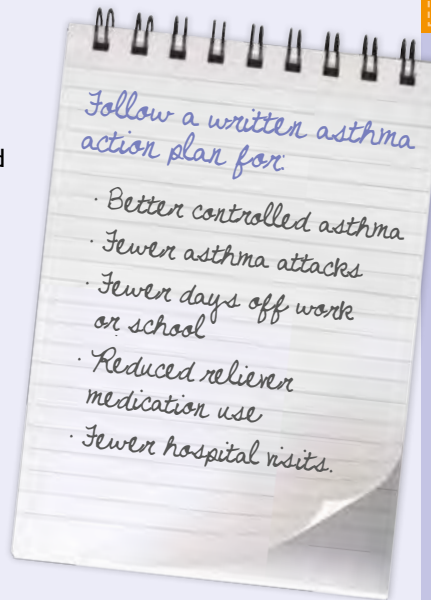 d
Follow a written asthma
action plan for:
· Better controlled asthma
· Fewer asthma attacks
· Fewer days off work
or school
· Reduced reliever
medication use
· Fewer hospital visits.